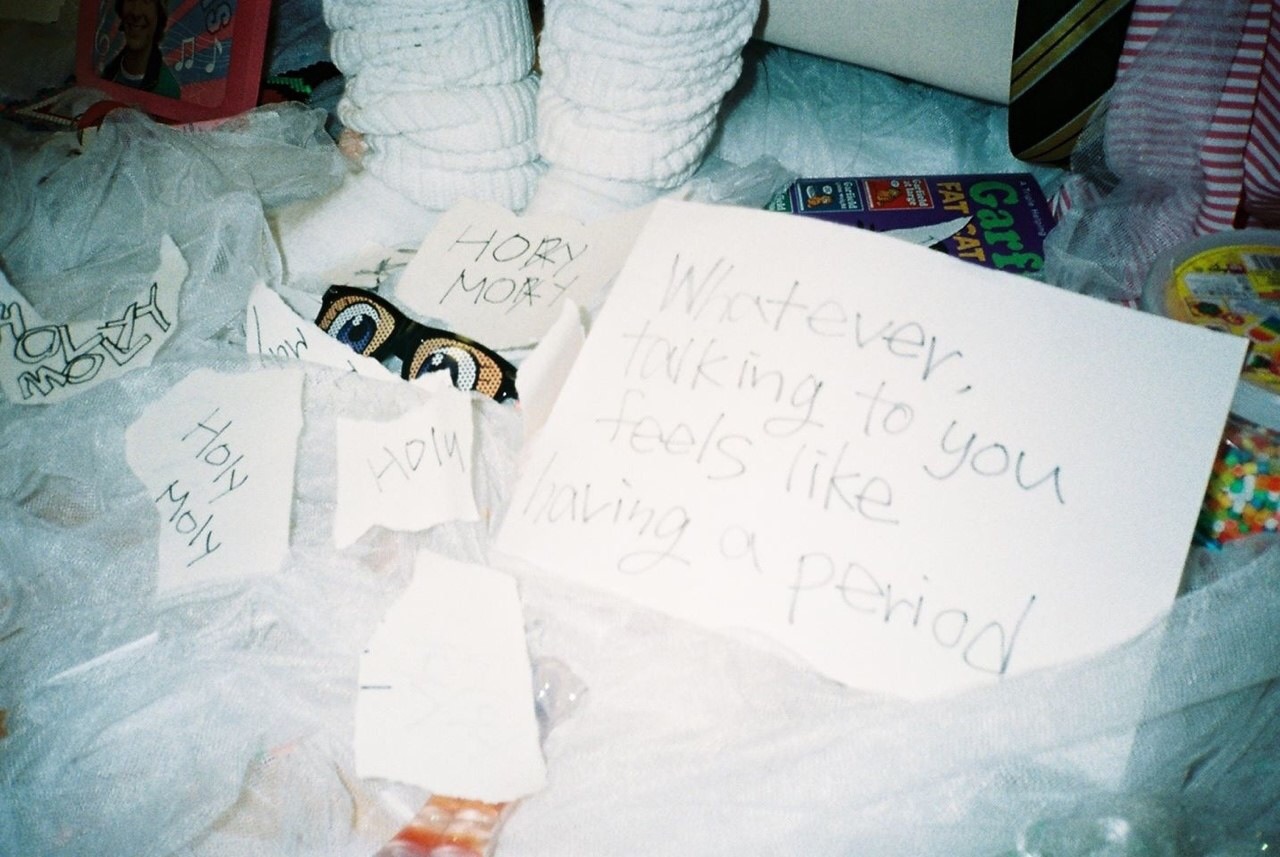 HOLY
MOLY
HORY
MORY
Holy
Moly
Holy
Whatever,
talking to you
feels like
having a period
Garf
FAT CAT